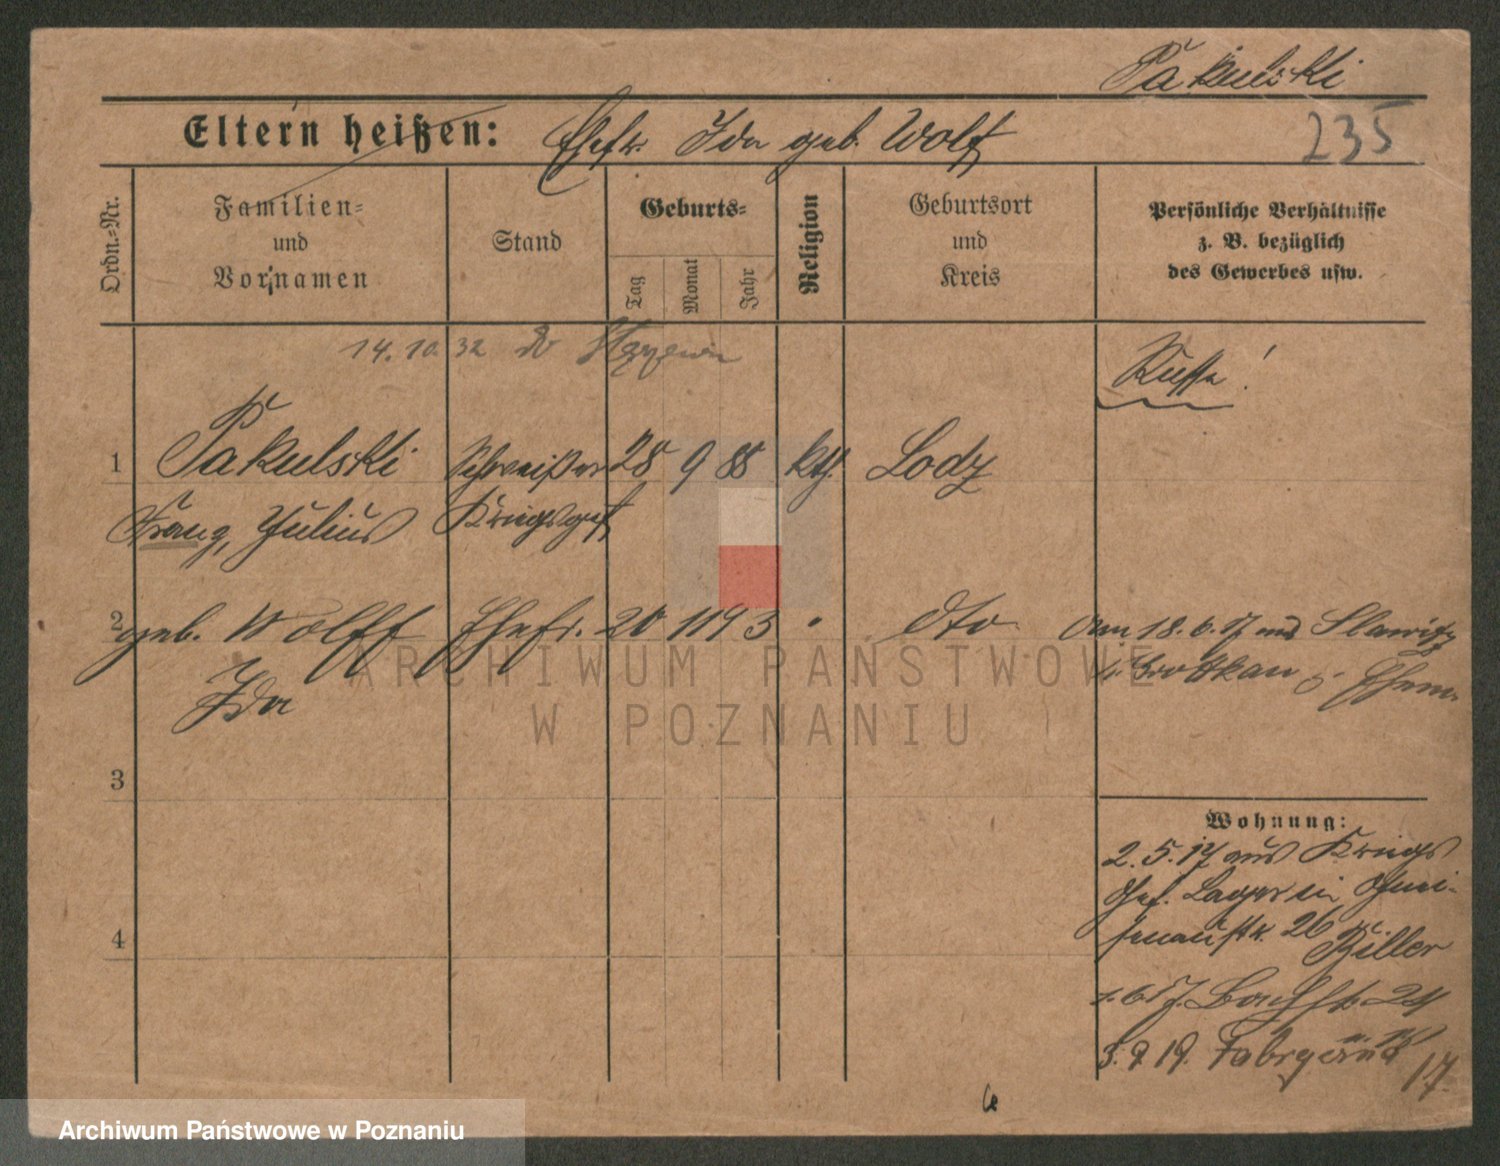 Pakulski
Eltern heißen: Ehefr. Ida geb. Wolff
235
Ordn.=Nr.
Familien=
und
Vornamen
Stand
Geburts=
Tag
Monat
Jahr
Religion
Geburtsort
und
Kreis
Persönliche Verhältnisse
z. B. bezüglich
des Gewerbes usw.
14. 10. 32
Russe!
1 Pakulski Schweißer 28 9 88 kth. Lodz
Franz, Julius Kriegsgef.
2 geb. Wolff Ehefr. 20 11 93 " dto
Ida
Am 18. 6. 17
Grottkau
3
4
Wohnung:
2. 5. 17 aus Kriegs
Gef. Lager in Gnei-
senaustr. 26
Biller
1. 6 17.
3. 9 19.
17.
ARCHIWUM PAŃSTWOWE
W POZNANIU
Archiwum Państwowe w Poznaniu